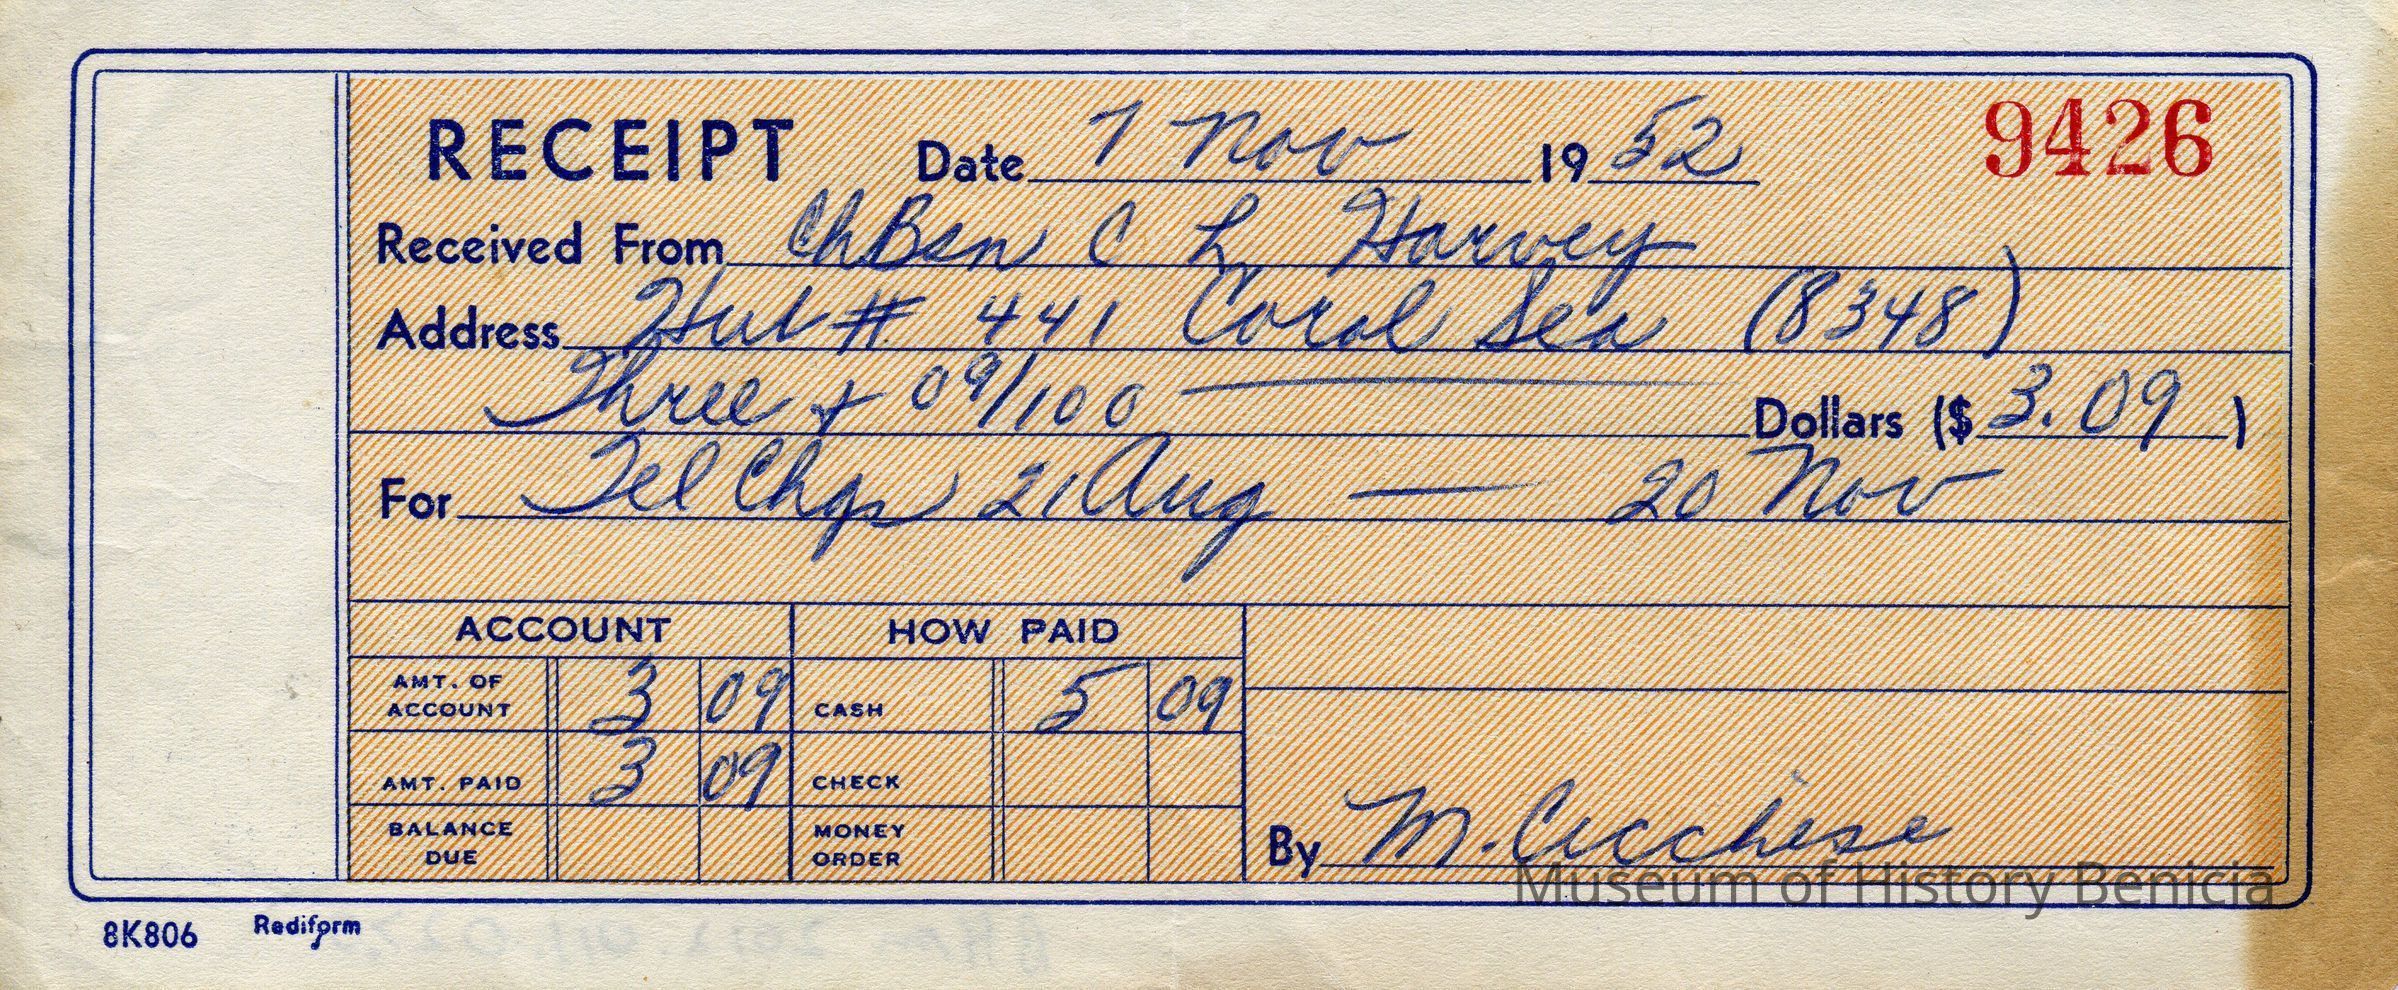 RECEIPT Date 7 Nov 1952 9426
Received From ChBsn C L Harvey
Address Hut # 441 Coral Sea (8348)
Three + 09/100 Dollars ($ 3.09 )
For Tel Chgs 21 Aug — 20 Nov
ACCOUNT HOW PAID
AMT. OF ACCOUNT 3 09 CASH 5 09
AMT. PAID 3 09 CHECK
BALANCE DUE MONEY ORDER
By M. Cicchese
Museum of History Benicia
8K806 Rediform